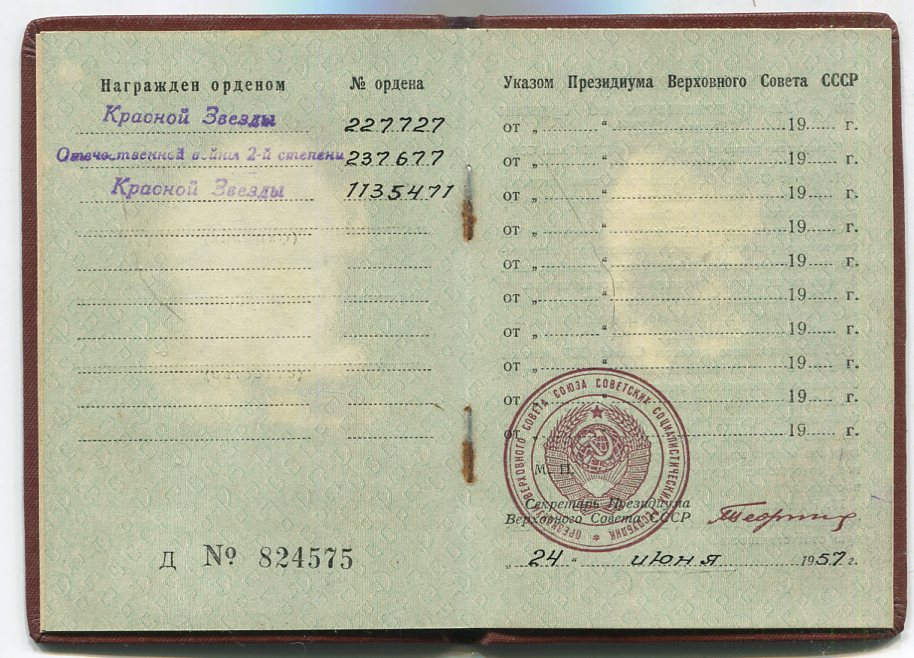 Награжден орденом № ордена
Красной Звезды 227727
Отечественной войны 2-й степени 237677
Красной Звезды 1135471
Д № 824575
Указом Президиума Верховного Совета СССР
от „ “ 19 г.
от „ “ 19 г.
от „ “ 19 г.
от „ “ 19 г.
от „ “ 19 г.
от „ “ 19 г.
от „ “ 19 г.
от „ “ 19 г.
от „ “ 19 г.
от „ “ 19 г.
М. П.
ПРЕЗИДИУМ ВЕРХОВНОГО СОВЕТА СОЮЗА СОВЕТСКИХ СОЦИАЛИСТИЧЕСКИХ РЕСПУБЛИК
Секретарь Президиума
Верховного Совета СССР
„ 24 “ июня 1957 г.